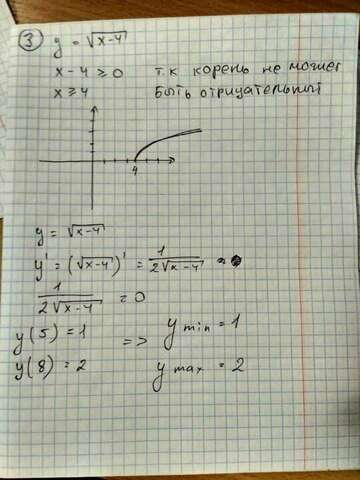 ③ y = √(x-4)
x - 4 ≥ 0 т.к корень не может
x ≥ 4 быть отрицательный
4
y = √(x-4)
y' = (√(x-4))' = 1/(2√(x-4))
1/(2√(x-4)) = 0
y(5) = 1 => y min = 1
y(8) = 2 y max = 2